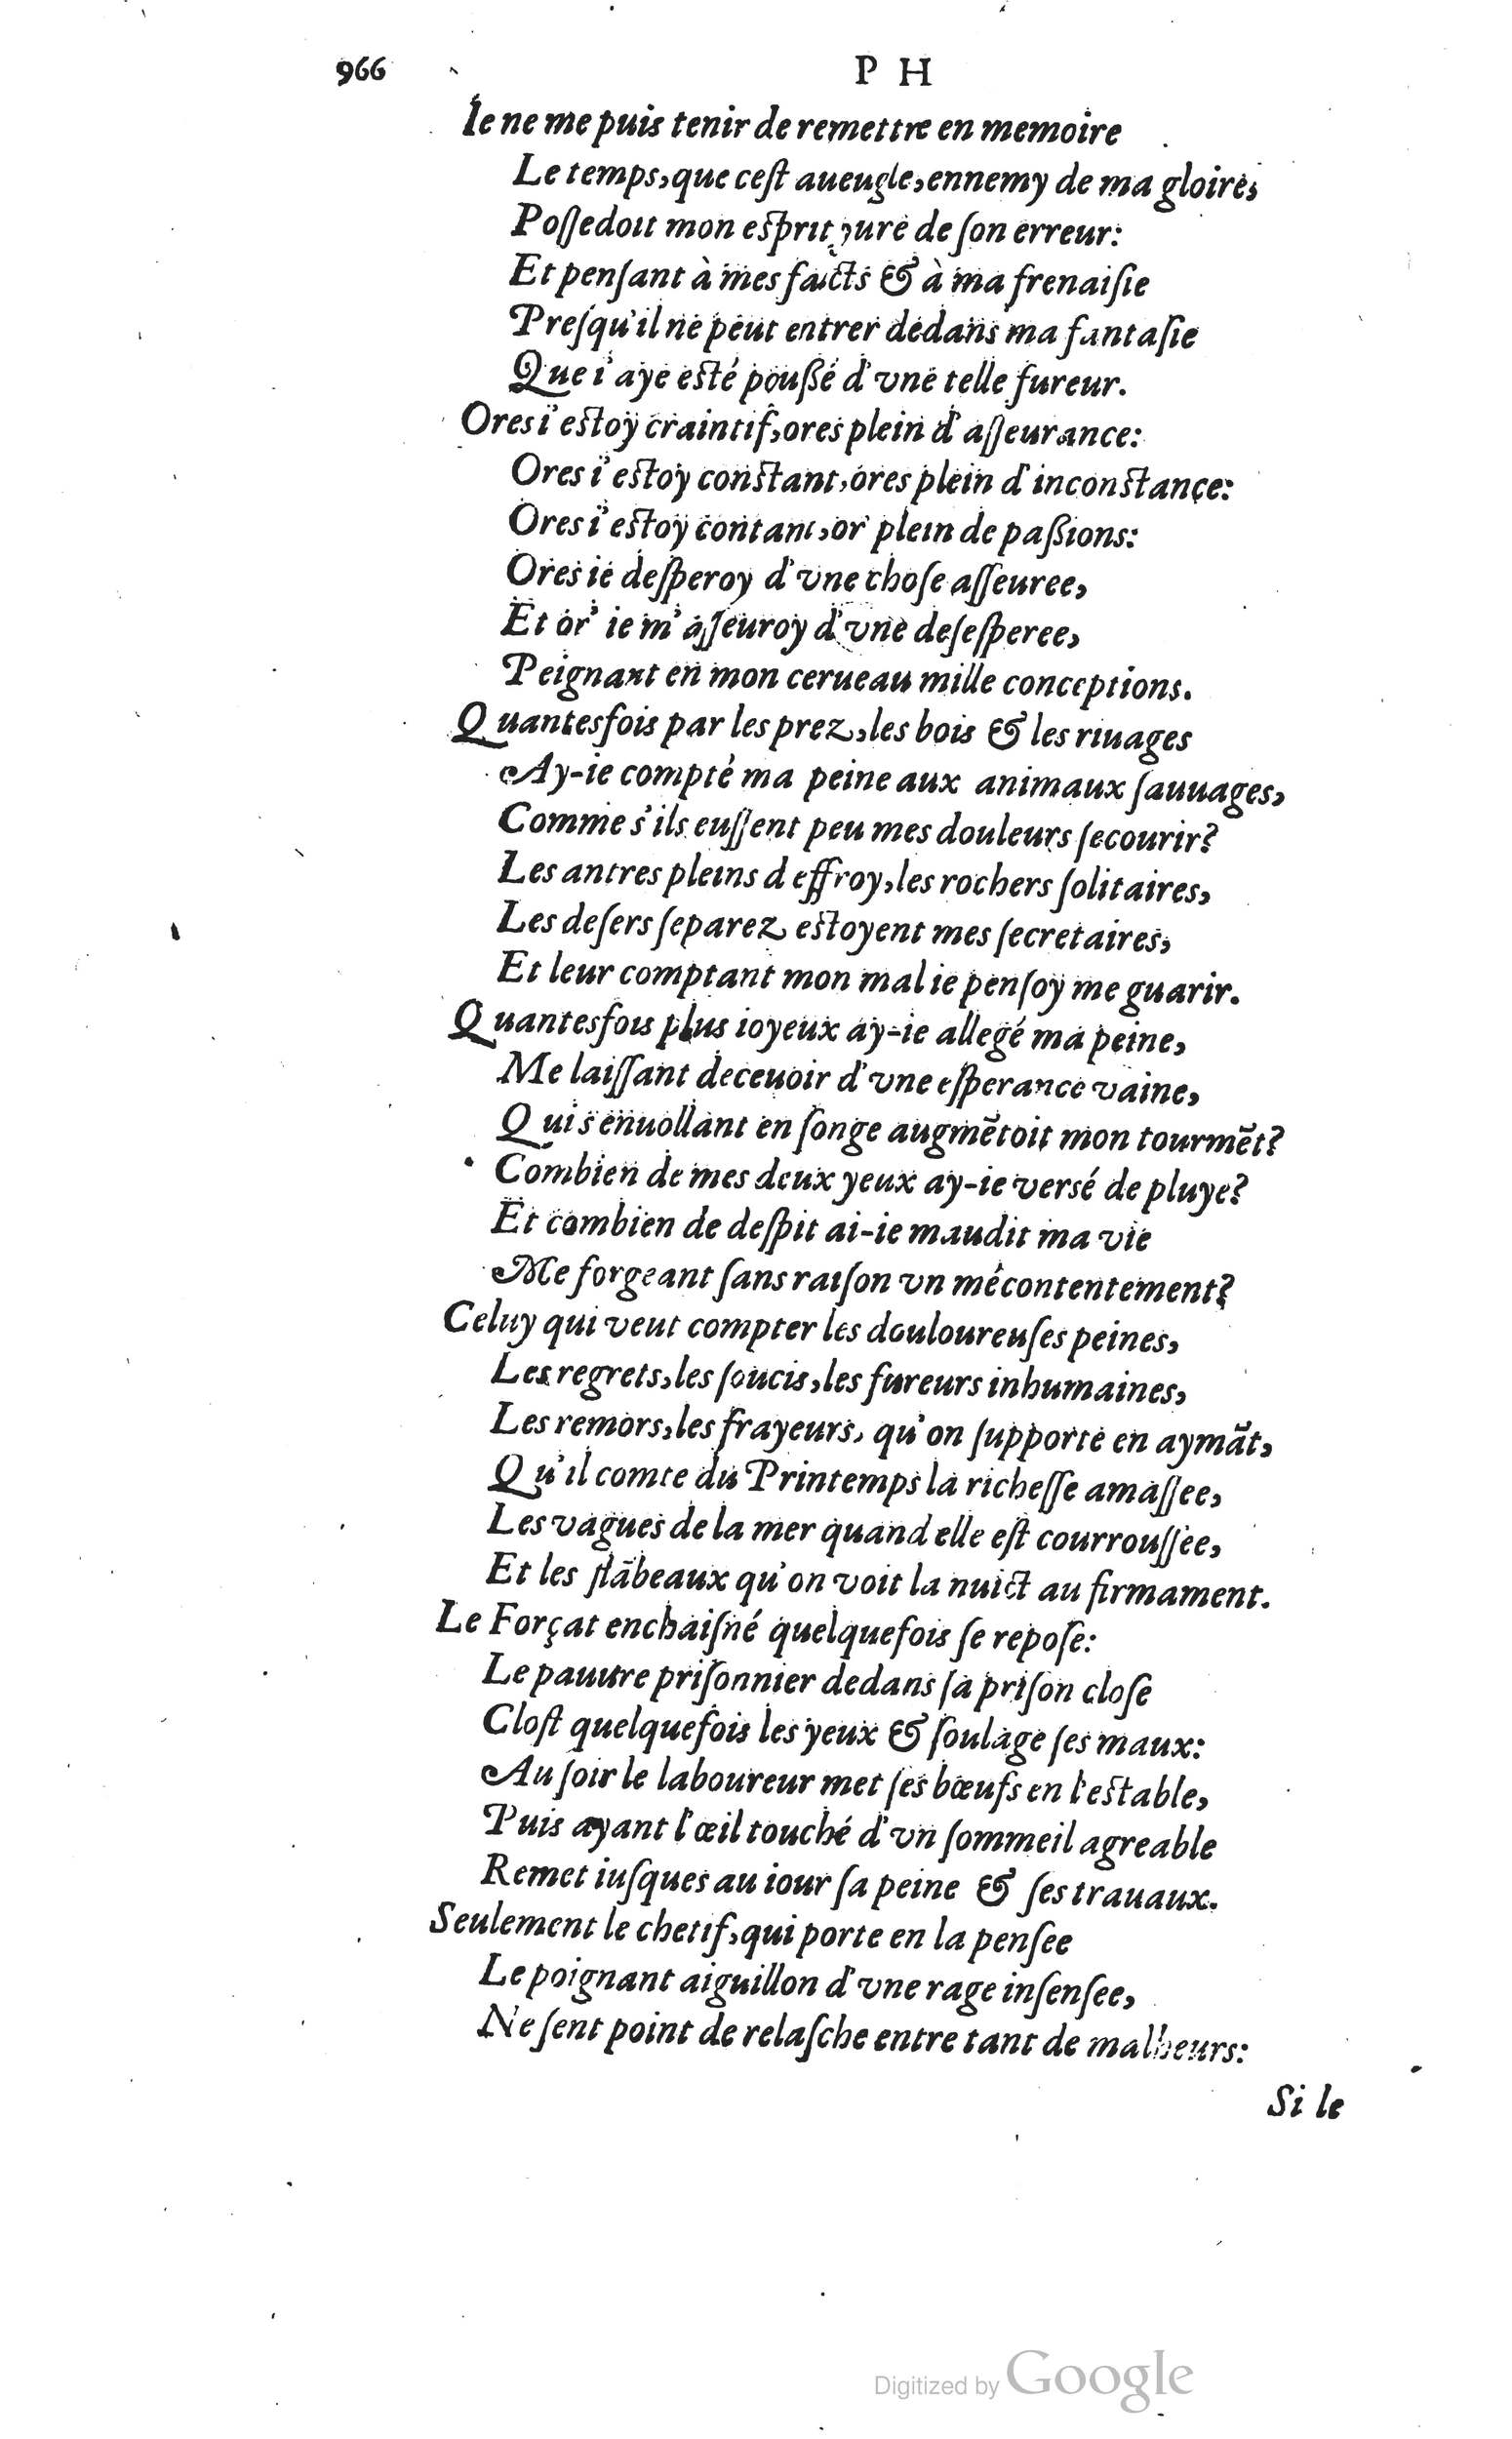 966 P H
Ie ne me puis tenir de remettre en memoire
Le temps, que ceſt aueugle, ennemy de ma gloire,
Poſſedoit mon eſprit yure de ſon erreur:
Et penſant à mes faicts & à ma frenaiſie
Preſqu'il ne peut entrer dedans ma fantaſie
Que i'aye eſté pouſſé d'vne telle fureur.
Ores i'eſtoy craintif, ores plein d'aſſeurance:
Ores i'eſtoy conſtant, ores plein d'inconſtance:
Ores i'eſtoy contant, or' plein de paſſions:
Ores ie deſperoy d'vne choſe aſſeuree,
Et or' ie m'aſſeuroy d'vne deſeſperee,
Peignant en mon cerueau mille conceptions.
Quantesfois par les prez, les bois & les riuages
Ay-ie compté ma peine aux animaux ſauuages,
Comme s'ils euſſent peu mes douleurs ſecourir?
Les antres pleins d effroy, les rochers ſolitaires,
Les deſers ſeparez eſtoyent mes ſecretaires,
Et leur comptant mon mal ie penſoy me guarir.
Quantesfois plus ioyeux ay-ie allegé ma peine,
Me laiſſant deceuoir d'vne eſperance vaine,
Qui s'enuollant en ſonge augmẽtoit mon tourmẽt?
Combien de mes deux yeux ay-ie versé de pluye?
Et combien de deſpit ai-ie maudit ma vie
Me forgeant ſans raiſon vn mécontentement?
Celuy qui veut compter les douloureuſes peines,
Les regrets, les ſoucis, les fureurs inhumaines,
Les remors, les frayeurs, qu'on ſupporte en aymãt,
Qu'il comte du Printemps la richeſſe amaſſee,
Les vagues de la mer quand elle eſt courrouſſee,
Et les flãbeaux qu'on voit la nuict au firmament.
Le Forçat enchaiſné quelquefois ſe repoſe:
Le pauure priſonnier dedans ſa priſon cloſe
Cloſt quelquefois les yeux & ſoulage ſes maux:
Au ſoir le laboureur met ſes bœufs en l'eſtable,
Puis ayant l'œil touché d'vn ſommeil agreable
Remet iuſques au iour ſa peine & ſes trauaux.
Seulement le chetif, qui porte en la penſee
Le poignant aiguillon d'vne rage inſenſee,
Ne ſent point de relaſche entre tant de malheurs:
Si le
Digitized by Google